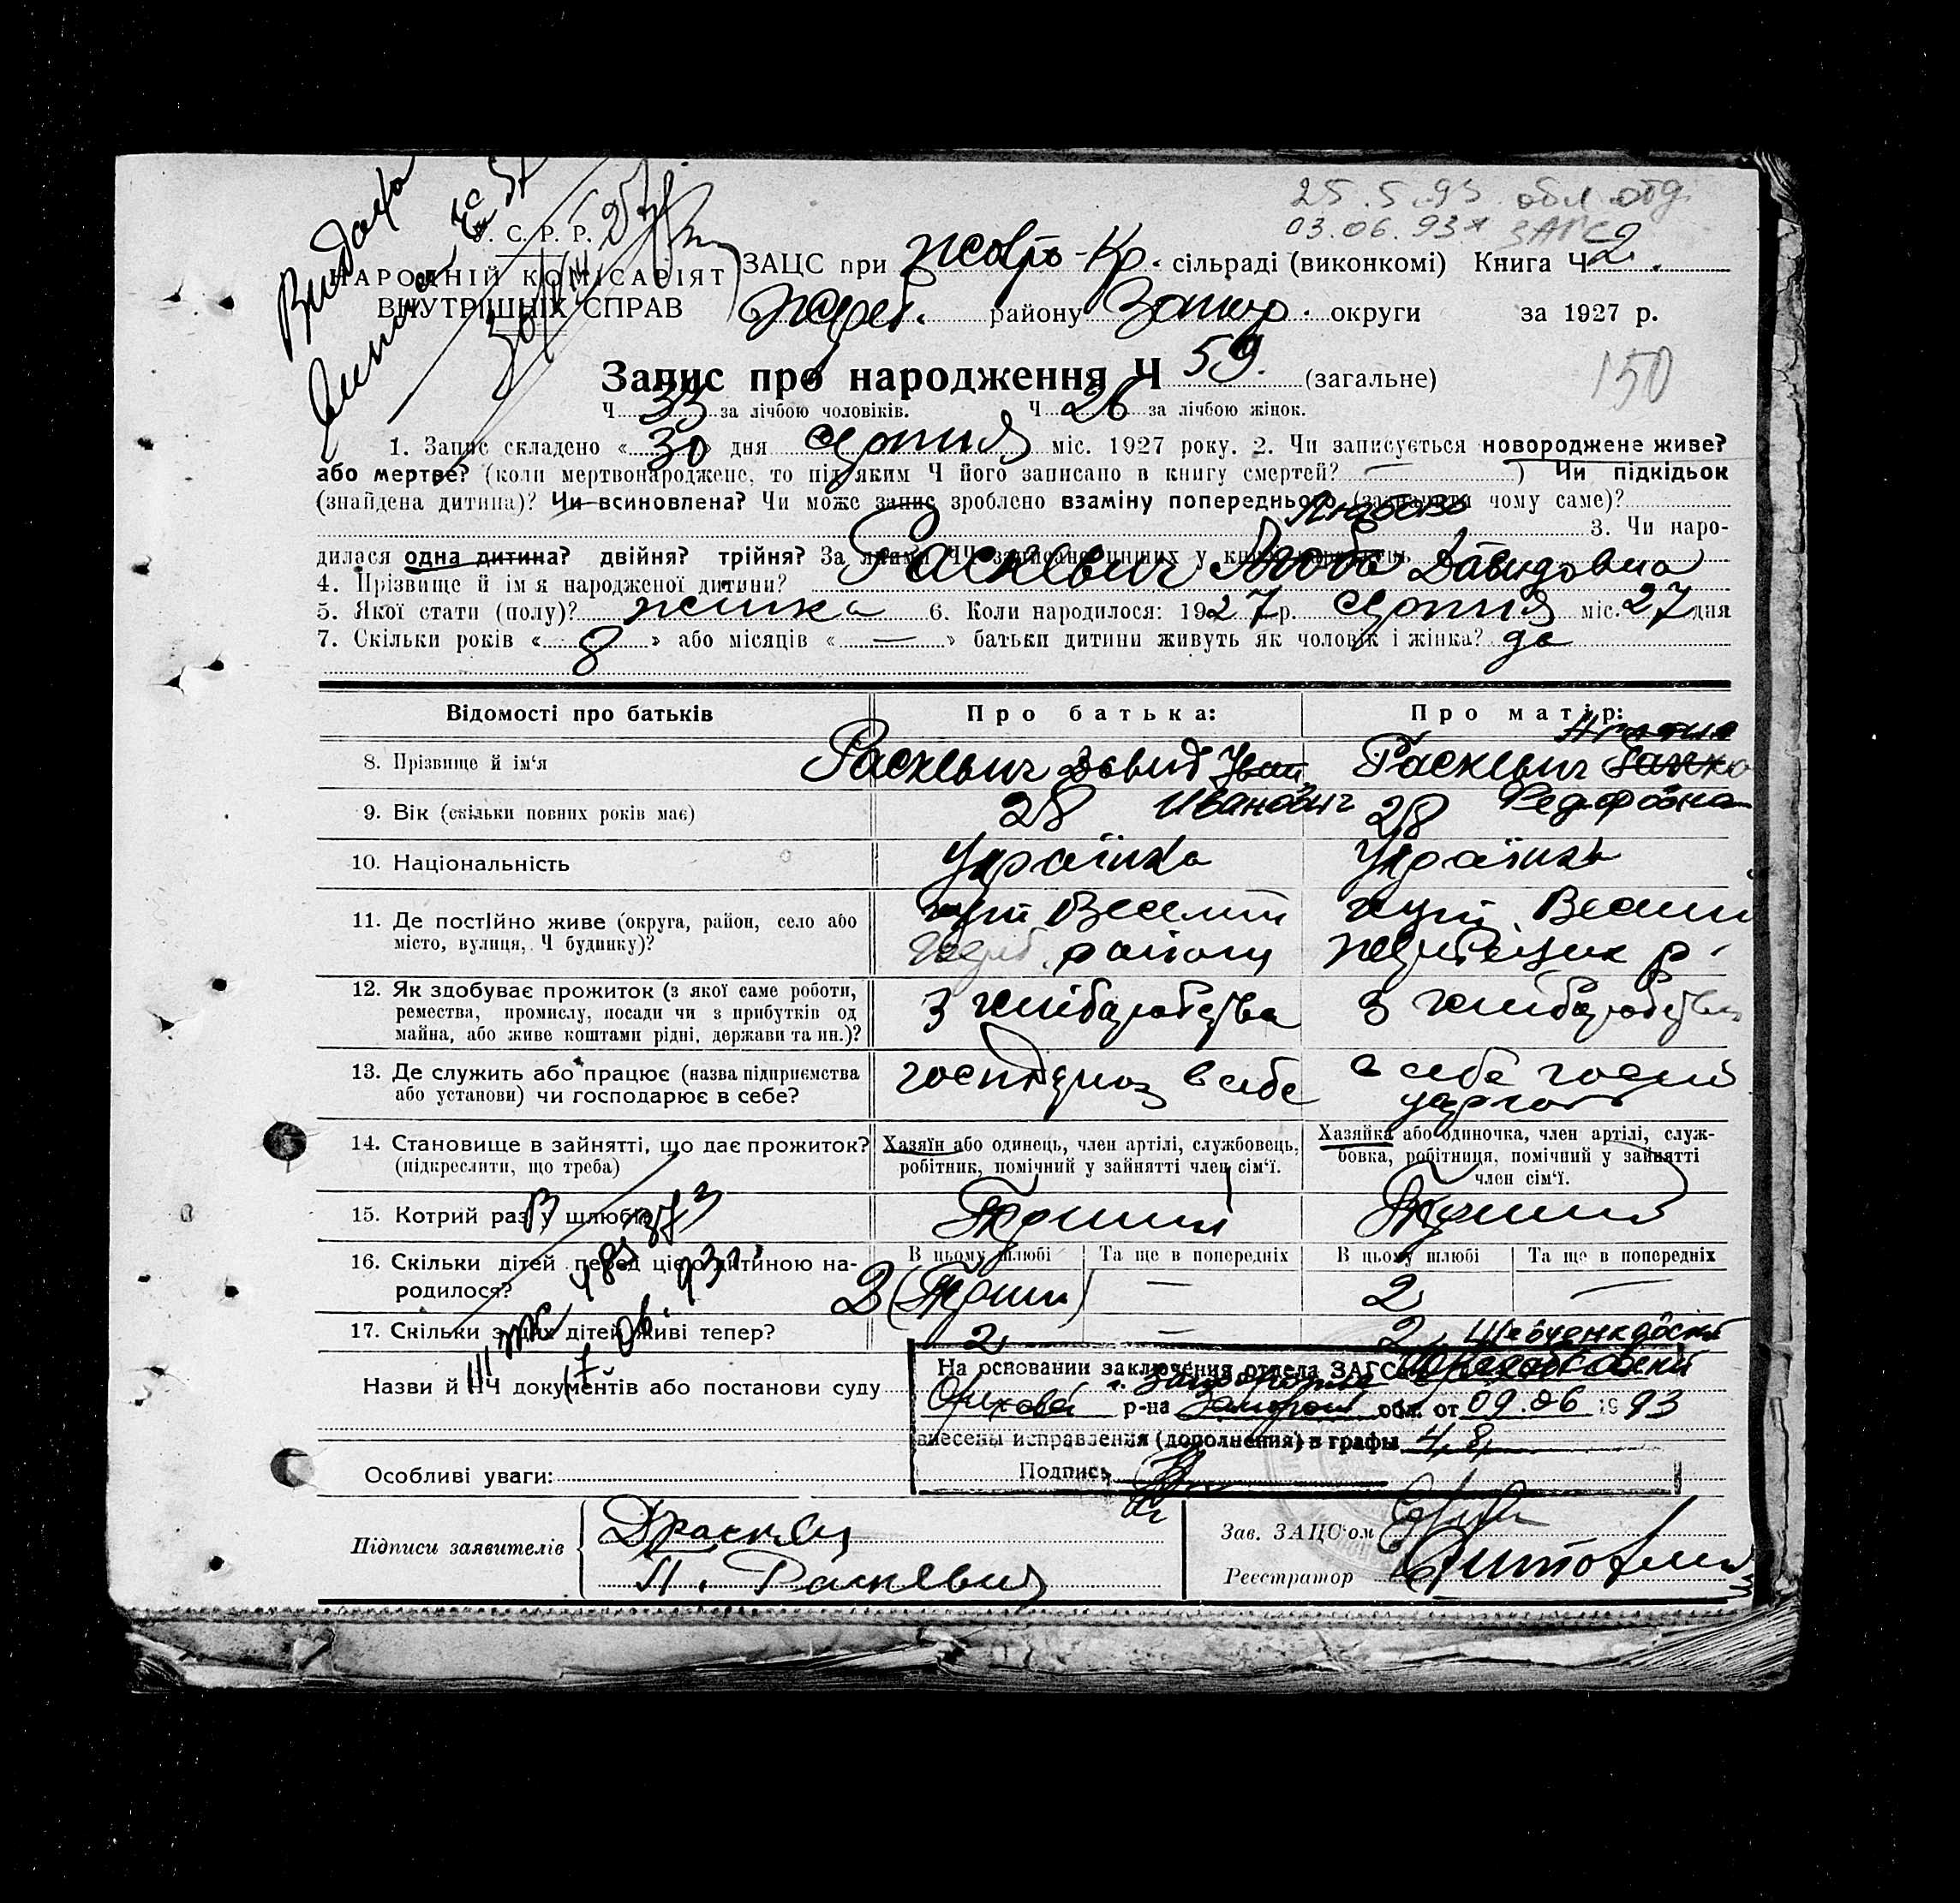 25.5.93 обл. отд.
03.06.93 ЗАГС
Видано
У. С. Р. Р.
НАРОДНІЙ КОМІСАРІЯТ
ВНУТРІШНІХ СПРАВ
ЗАЦС при Жовто-Кр. сільраді (виконкомі) Книга Ч 2.
району Запор. округи за 1927 р.
Запис про народження Ч 59. (загальне)
150
Ч 33 за лічбою чоловіків. Ч 26 за лічбою жінок.
1. Запис складено « 30 » дня серпня міс. 1927 року. 2. Чи записується новороджене живе?
або мертве? (коли мертвонароджене, то під яким Ч його записано в книгу смертей? — ) Чи підкідьок
(знайдена дитина)? Чи всиновлена? Чи може запис зроблено взаміну попереднього (зазначити чому саме)?
3. Чи наро-
дилася одна дитина? двійня? трійня? За якими ЧЧ записано инших у книзі народжень
Любовь
4. Прізвище й ім'я народженої дитини? Раскевич Люба Давидовна
5. Якої стати (полу)? жінка 6. Коли народилося: 1927 р. серпня міс. 27 дня
7. Скільки років « 8 » або місяців « — » батьки дитини живуть як чоловік і жінка? да
Відомості про батьків Про батька: Про матір:
8. Прізвище й ім'я Раскевич Давид Іван Раскевич
Иванович
9. Вік (скільки повних років має) 28 28
10. Національність Українка Українка
11. Де постійно живе (округа, район, село або
місто, вулиця, Ч будинку)?
хут Веселий
району
12. Як здобуває прожиток (з якої саме роботи,
ремества, промислу, посади чи з прибутків од
майна, або живе коштами рідні, держави та ин.)?
З хліборобства З хліборобства
13. Де служить або працює (назва підприємства
або установи) чи господарює в себе?
в себе
в себе
14. Становище в зайнятті, що дає прожиток?
(підкреслити, що треба)
Хазяїн або одинець, член артілі, службовець,
робітник, помічний у зайнятті член сім'ї.
Хазяйка або одиночка, член артілі, служ-
бовка, робітниця, помічний у зайнятті
член сім'ї.
15. Котрий раз у шлюбі? Перший Перший
16. Скільки дітей перед цією дитиною на-
родилося?
В цьому шлюбі Та ще в попередніх В цьому шлюбі Та ще в попередніх
2 — 2 —
17. Скільки з цих дітей живі тепер? 2 — 2
Шевченковский
Назви й ЧЧ документів або постанови суду
На основании заключения отдела ЗАГС
г. Запорожья
р-на обл. от 09.06 1993
внесены исправления (дополнения) в графы 4, 8
Подпись
Особливі уваги:
Підписи заявителів
П. Раскевич
Зав. ЗАЦС'ом
Реєстратор